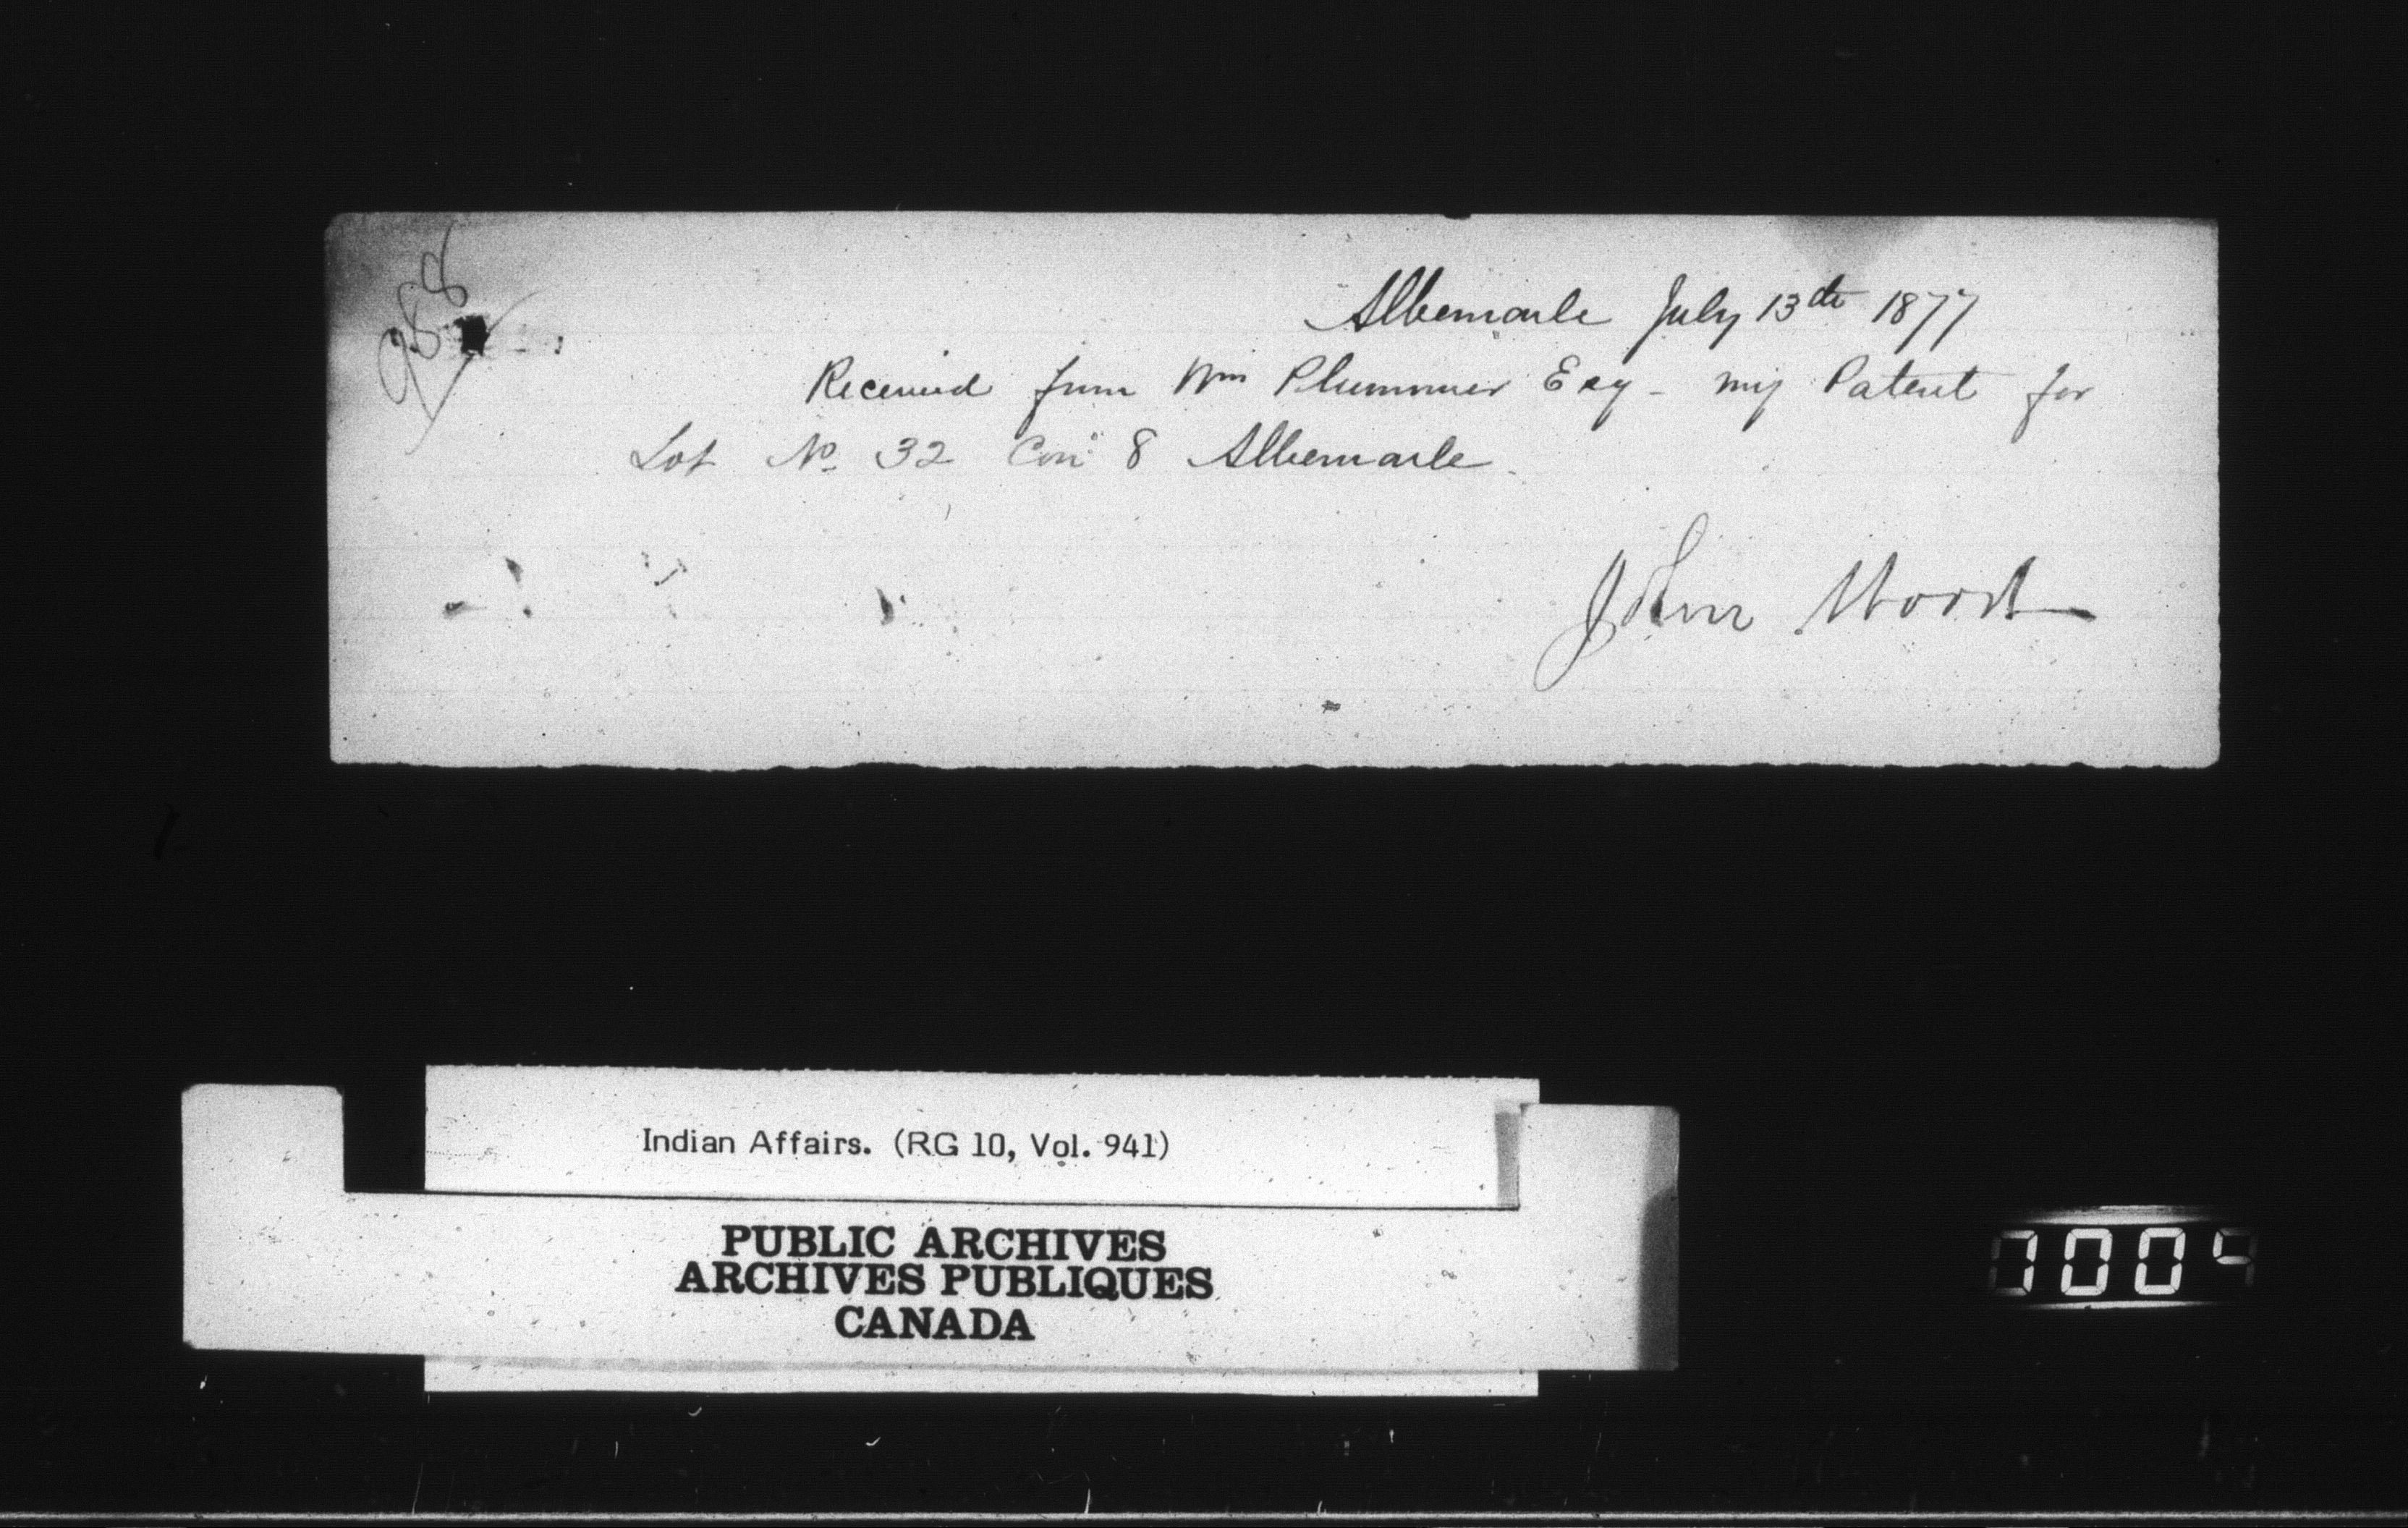 988
Albemarle July 13th 1877
Received from Wm Plummer Esq - my Patent for
Lot No. 32 Con 8 Albemarle.
John Wood
Indian Affairs. (RG 10, Vol. 941)
PUBLIC ARCHIVES
ARCHIVES PUBLIQUES
CANADA